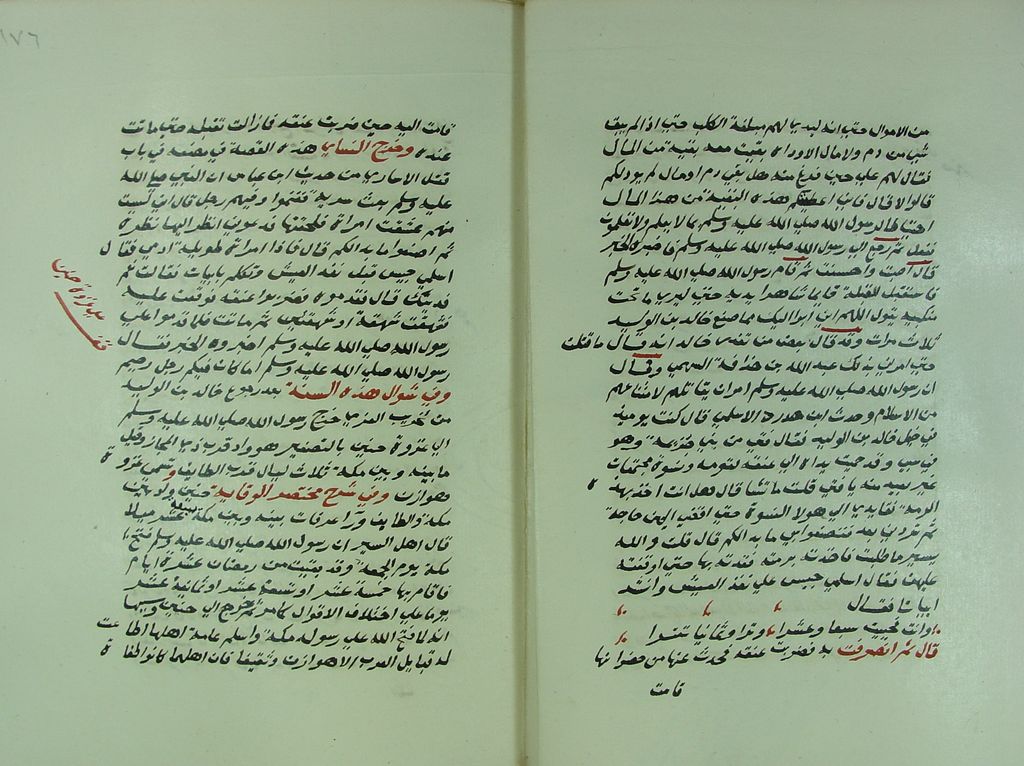 من الاموال حتى انه ليديا لهم ميلغة الكلب حتى اذا لم يبق
شيء من دم ولا مال الا وداه بقيت معه بقية من المال
فقال لهم علي حين فرغ منه هل بقي دم او مال لم يود لكم
قالوا لا قال فاني اعطيكم هذه البقية من هذا المال
احتياطا لرسول الله صلى الله عليه وسلم مما لا يعلم ولا تعلمون
ففعل ثم رجع الى رسول الله صلى الله عليه وسلم فاخبره الخبر
قال اصبت واحسنت ثم قام رسول الله صلى الله عليه وسلم
فاستقبل القبلة قايما شاهرا يديه حتى ليرى ما تحت
منكبيه يقول اللهم اني ابرا اليك مما صنع خالد بن الوليد
ثلاث مرات وقد قال بعض من تعذر خالد انه قال ما قتلت
حتى امرني بذلك عبد الله بن حذافة السهمي وقال
ان رسول الله صلى الله عليه وسلم امرك ان تقاتلهم لامتناعهم
من الاسلام وحدث ابن حدرد الاسلمي قال كنت يوميذ
في خيل خالد بن الوليد فقال فتى من بني جذيمة وهو
في سبي وقد جمعت يداه الى عنقه برمة ونسوة مجتمعات
غير بعيد منه يا فتى قلت ما تشا قال هل انت اخذ بهذه
الرمة فقايدي الى هولا النسوة حتى اقضي اليهن حاجة
ثم تردني بعد فتصنعوا بي ما بدا لكم قال قلت والله
ليسير ما طلبت فاخذت برمته فقدته بها حتى اوقفته
عليهن فقال اسلمي حبيش على نفد العيش وانشد
ابياتا فقال
وانت فحييت سبعا وعشرا وترا وثمانيا تترا
قال ثم انصرفت به فضربت عنقه فحدث عنها من حضرانها
قامت
١٧٦
قامت اليه حين ضربت عنقه فما زالت تقبله حتى ماتت
عنده وخرج النساي هذه القصة في مصنفه في باب
قتل الاسارى من حديث ابن عباس ان النبي صلى الله
عليه وسلم بعث سرية فغنموا وفيهم رجل قال اني لست
منهم عشقت امراة فلحقتها فدعوني انظر اليها نظرة
ثم اصنعوا ما بدا لكم قال فاذا امراة طويلة ادمى فقال
اسلمي حبيش قبل نفد العيش وتكلم بابيات فقالت نعم
فديتك قال فقدموه فضربوا عنقه فوقعت عليه
فشهقت شهقة او شهقتين ثم ماتت فلما قدموا على
رسول الله صلى الله عليه وسلم اخبروه الخبر فقال
رسول الله صلى الله عليه وسلم اما كان فيكم رجل رحيم
وفي شوال هذه السنة بعد رجوع خالد بن الوليد
من تخريب العزى خرج رسول الله صلى الله عليه وسلم
الى غزوة حنين بالتصغير هو واد قرب ذي المجاز وقيل
ما بينه وبين مكة ثلاث ليال قرب الطايف وتسمى غزوة
هوازن وفي شرح مختصر الوقاية حنين واد بين
مكة والطايف ورا عرفات بينه وبين مكة بضعة عشر ميلا
قال اهل السير ان رسول الله صلى الله عليه وسلم فتح
مكة يوم الجمعة وقد بقيت من رمضان عشرة ايام
فاقام بها خمسة عشر او تسعة عشر او ثمانية عشر
يوما على اختلاف الاقوال كما مر ثم خرج الى حنين وسببها
انه لما فتح الله على رسوله مكة واسلم عامة اهلها اطاعت
له قبايل العرب الا هوازن وثقيفا فان اهلهما كانوا طغاة